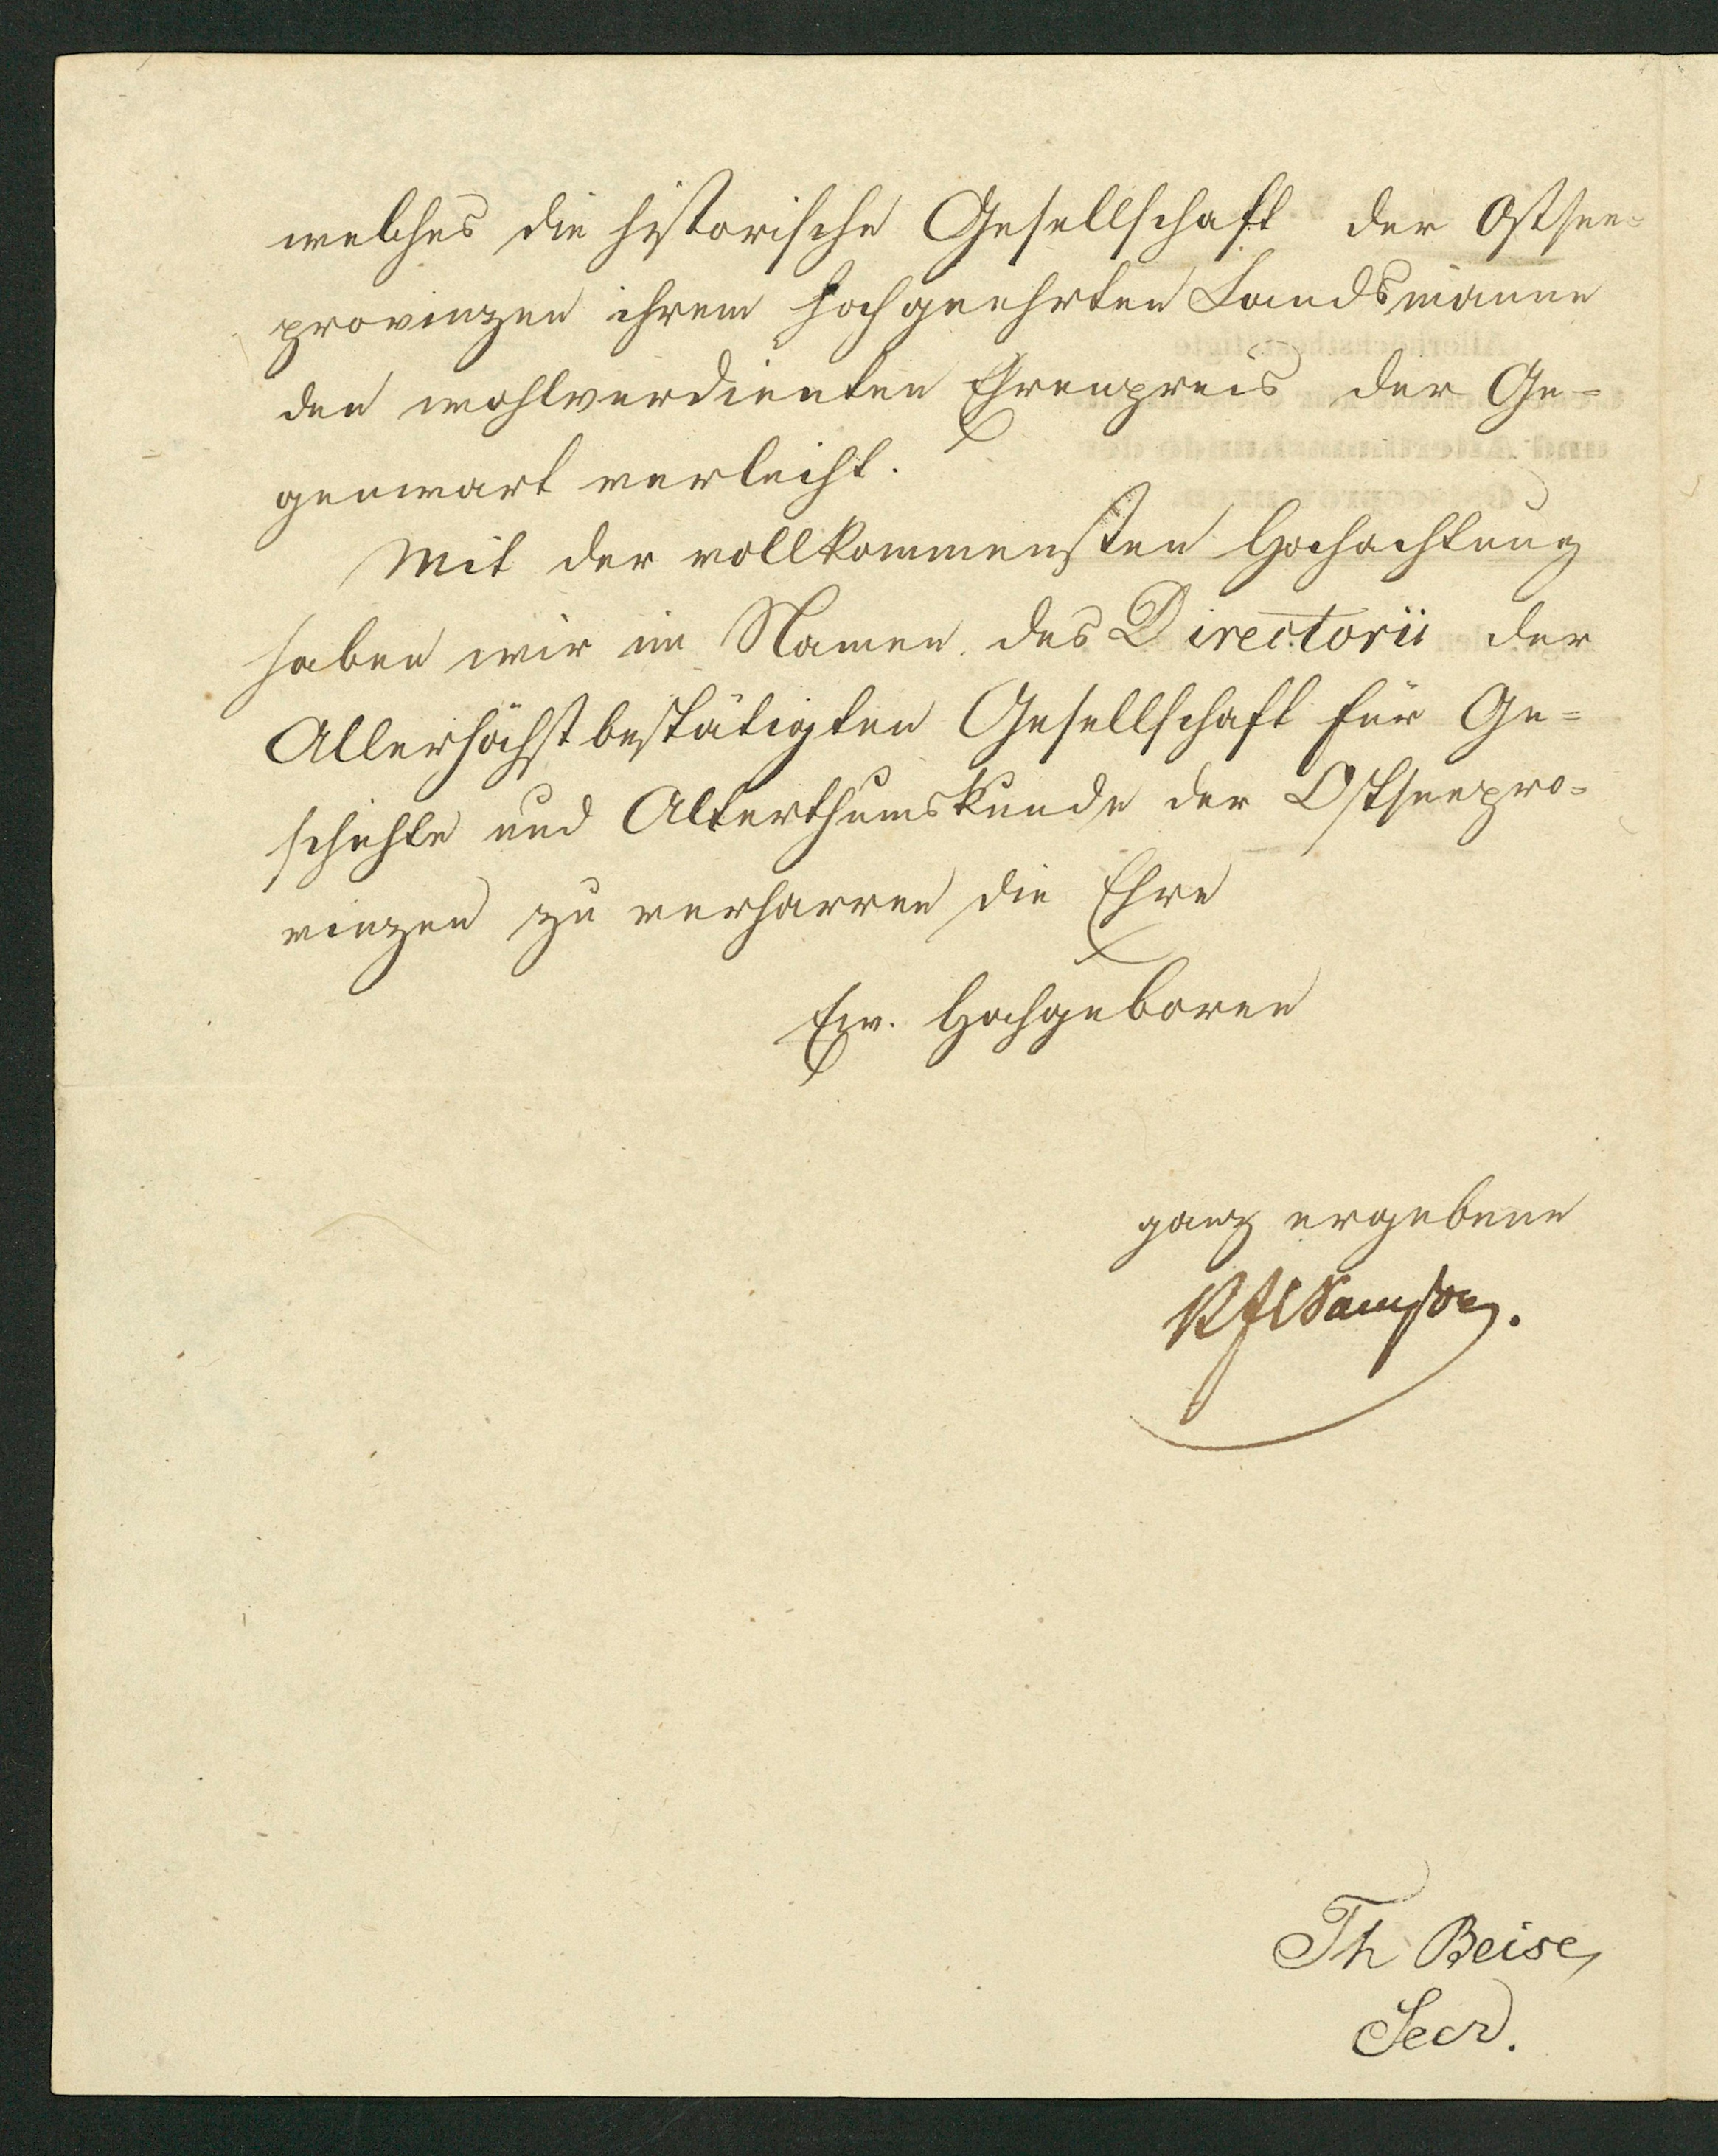 welches die historische Gesellschaft der Ostsee-
provinzen ihrem hochgeehrten Landsmanne
den wohlverdienten Ehrenpreis der Ge-
genwart verleiht.
Mit der vollkommensten Hochachtung
haben wir im Namen des Directorii der
Allerhöchst bestätigten Gesellschaft für Ge-
schichte und Alterthumskunde der Ostseepro-
vinzen zu verharren die Ehre
Ew. Hochgeboren
ganz ergebene
Samson.
Th Beise,
Secr.